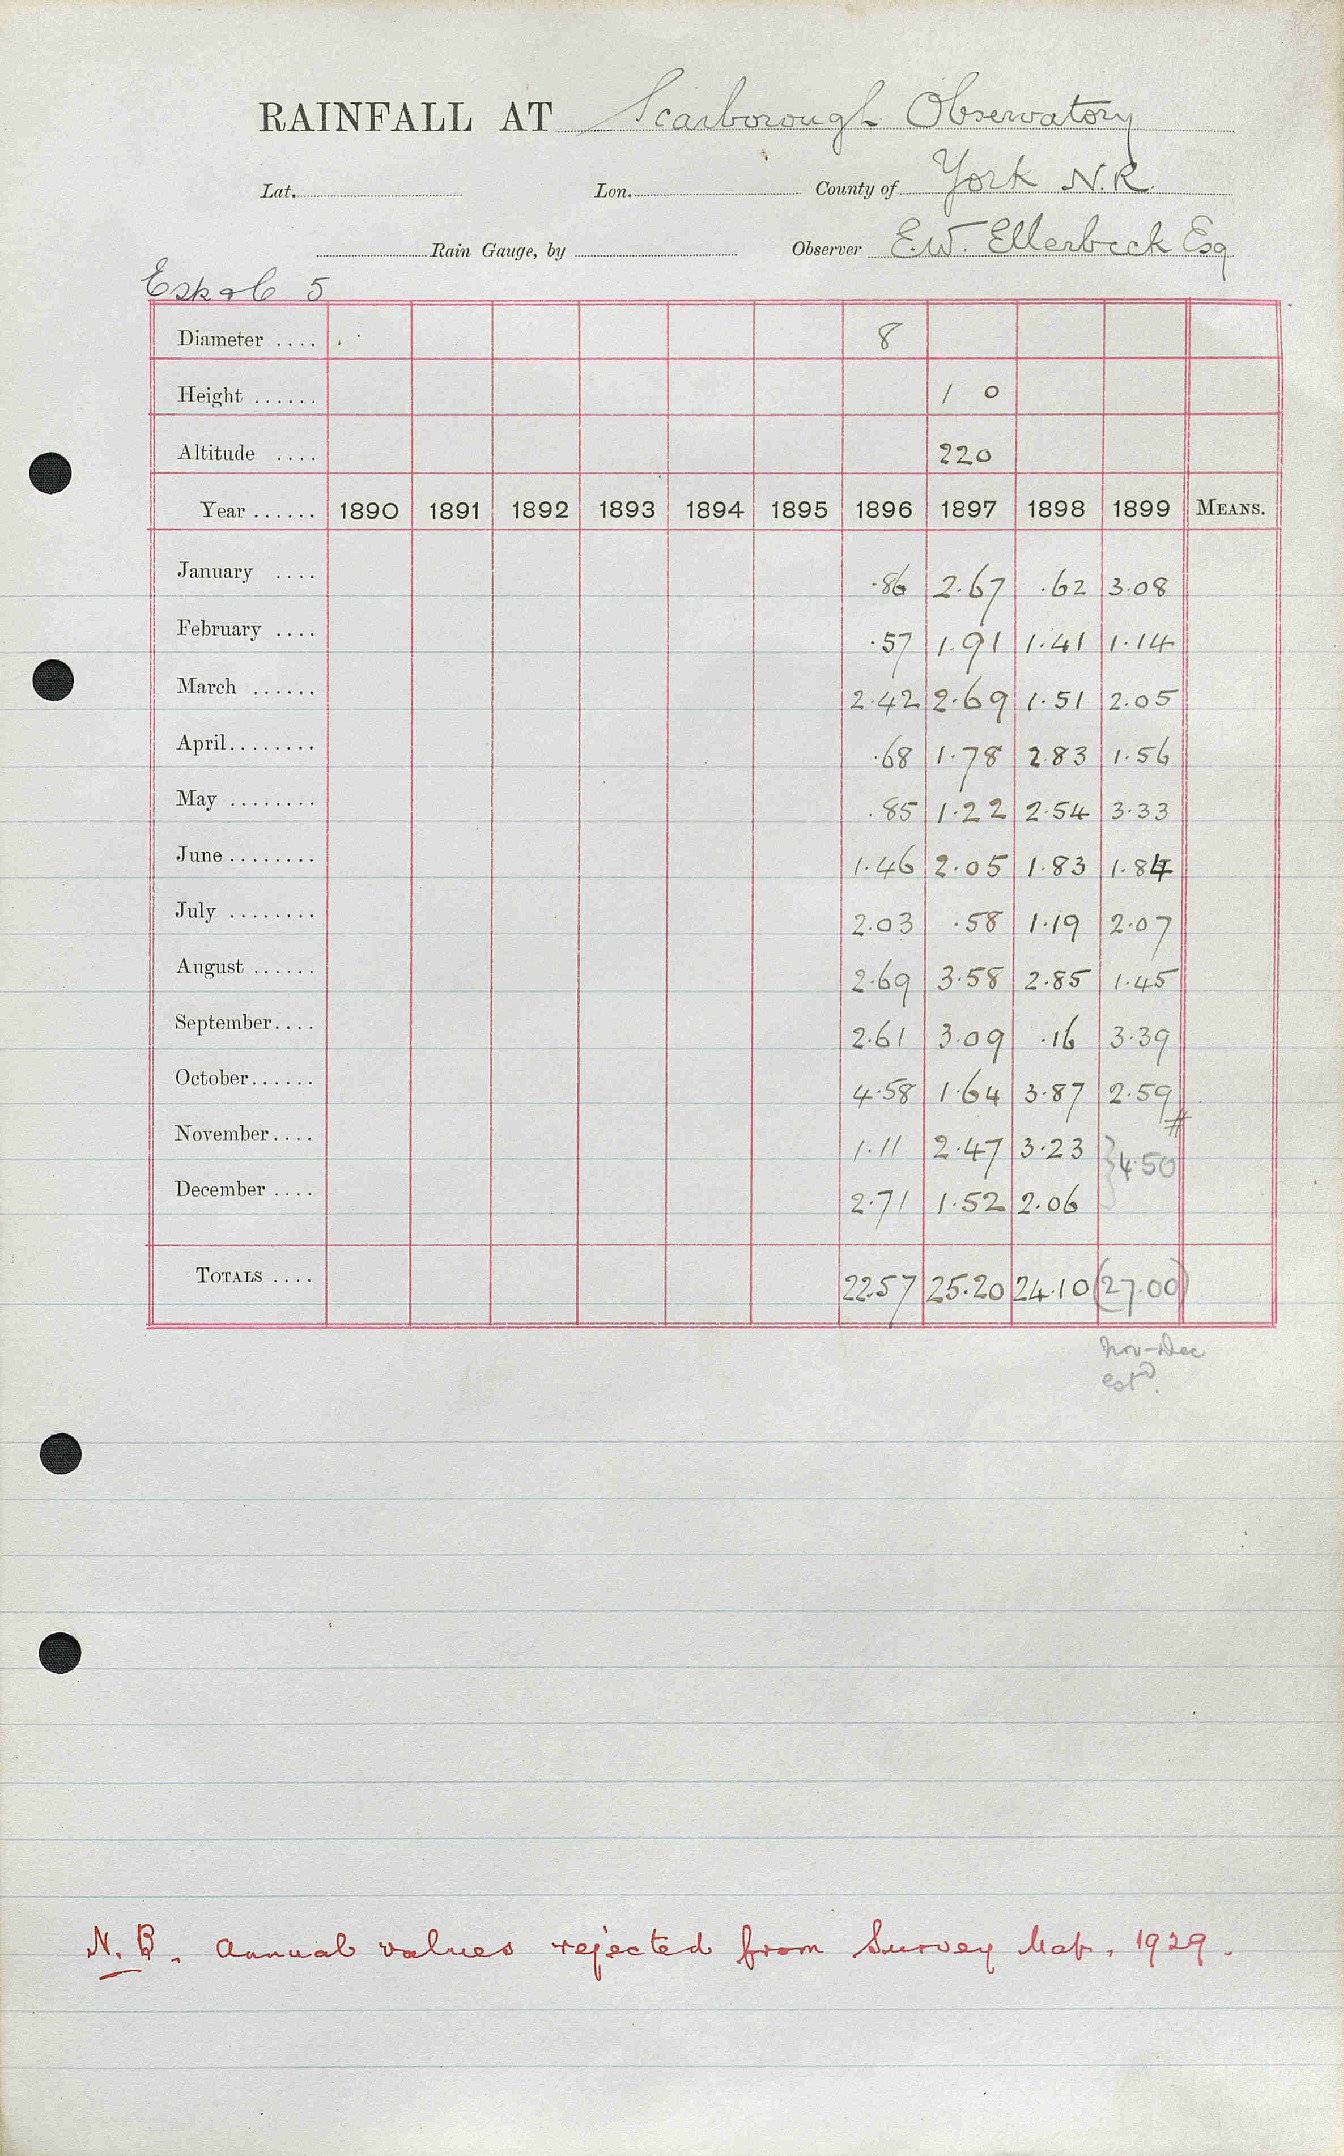 RAINFALL AT Scarborough Observatory
Lat. Lon. County of York N.R.
Rain Gauge, by Observer E.W. Ellerbeck Esq
5
Diameter .... 8
Height ...... 1 0
Altitude .... 220
Year ...... 1890 1891 1892 1893 1894 1895 1896 1897 1898 1899 MEANS.
January .... .86 2.67 .62 3.08
February .... .57 1.91 1.41 1.14
March ...... 2.42 2.69 1.51 2.05
April........ .68 1.78 2.83 1.56
May ........ .85 1.22 2.54 3.33
June........ 1.46 2.05 1.83 1.84
July ........ 2.03 .58 1.19 2.07
August ...... 2.69 3.58 2.85 1.45
September.... 2.61 3.09 .16 3.39
October...... 4.58 1.64 3.87 2.59
#
November.... 1.11 2.47 3.23 } 4.50
December .... 2.71 1.52 2.06
TOTALS .... 22.57 25.20 24.10 (27.00)
Nov-Dec
estD.
N.B. Annual values rejected from Survey Map. 1929.